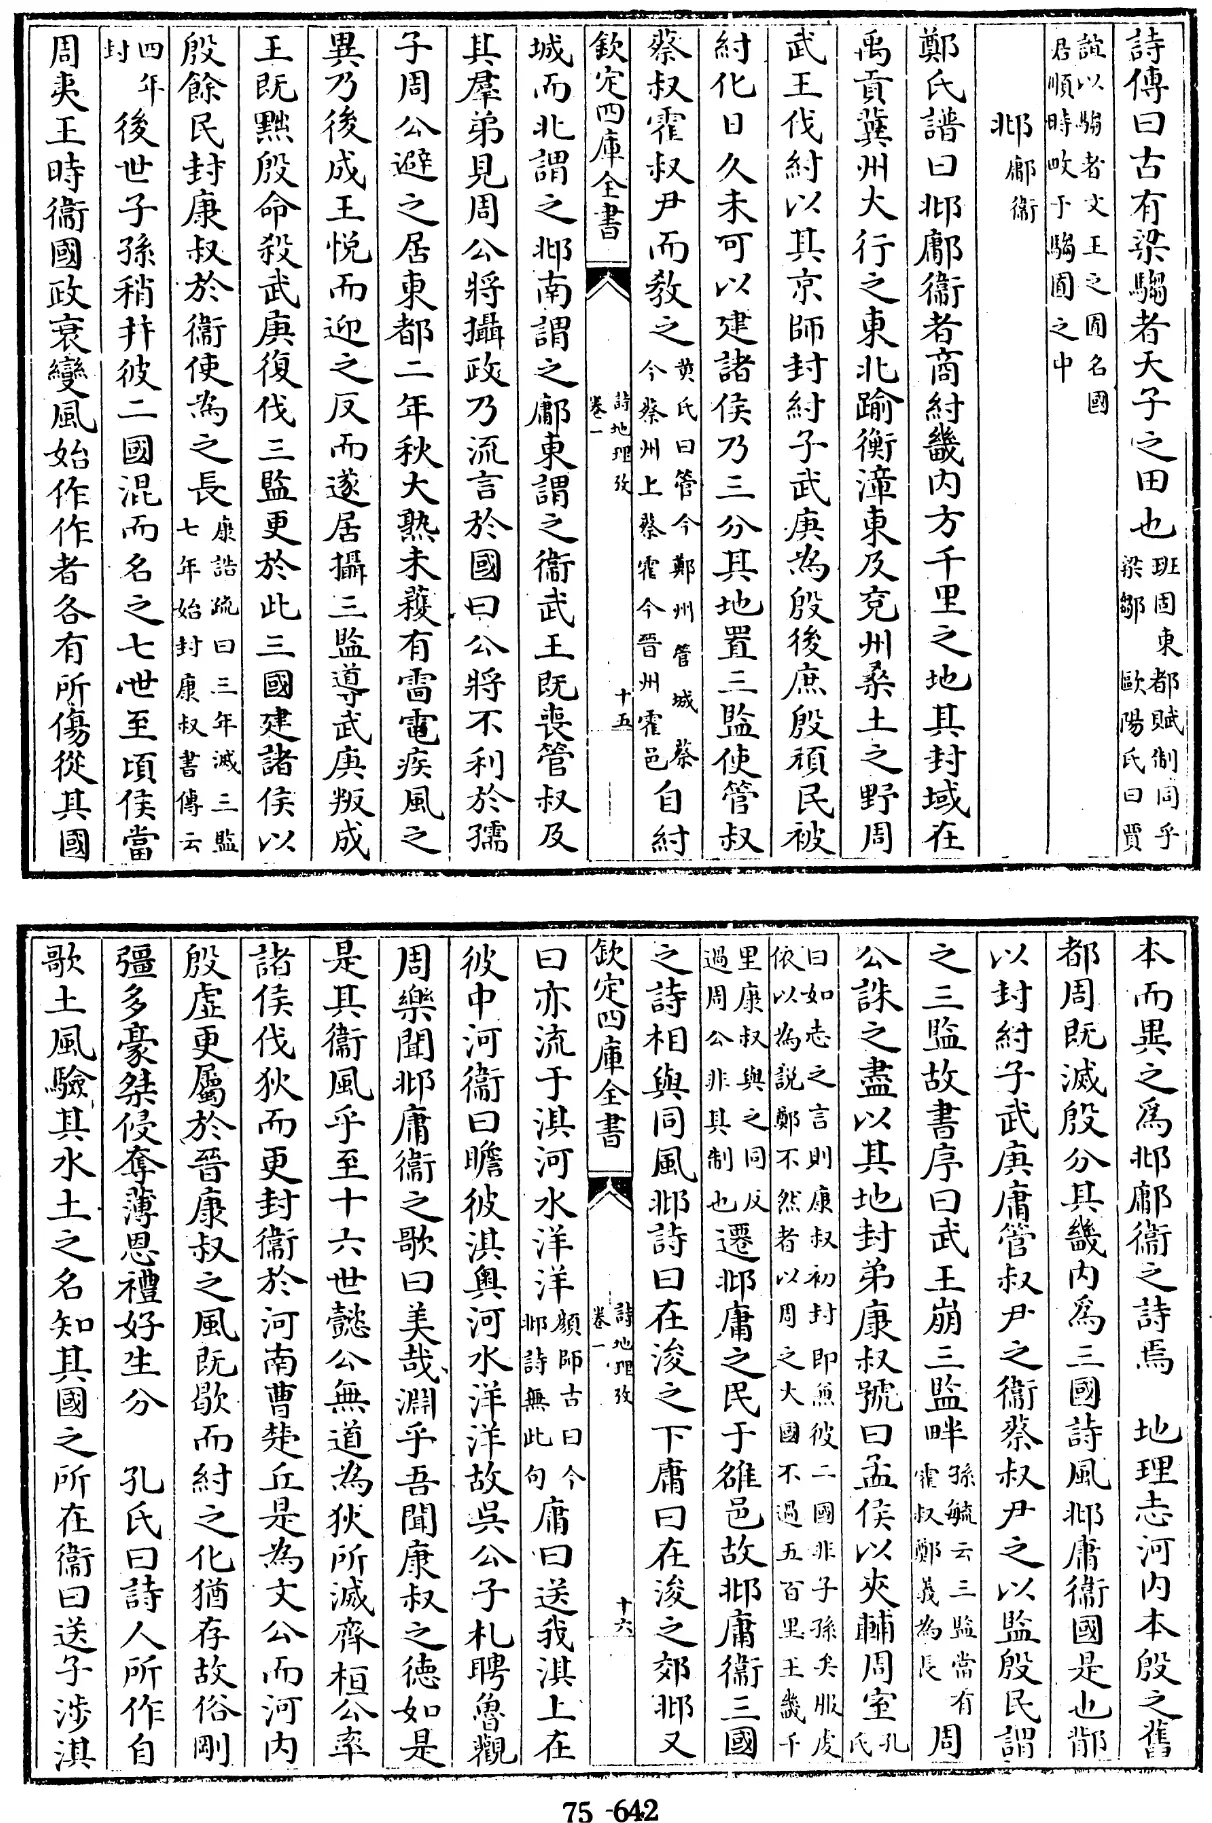 詩傳曰古有梁騶者天子之田也班固東都賦制同乎梁鄒 歐陽氏曰賈
誼以騶者文王之囿名國君順時畋于騶囿之中
邶鄘衞
鄭氏譜曰邶鄘衞者商紂畿内方千里之地其封域在
禹貢冀州大行之東北踰衡漳東及兖州桑土之野周
武王伐紂以其京師封紂子武庚為殷後庶殷頑民被
紂化日久未可以建諸侯乃三分其地置三監使管叔
蔡叔霍叔尹而教之黄氏曰管今鄭州管城蔡今蔡州上蔡霍今晉州霍邑自紂
欽定四庫全書
詩地理攷
卷一
十五
城而北謂之邶南謂之鄘東謂之衞武王既喪管叔及
其羣弟見周公將攝政乃流言於國曰公將不利於孺
子周公避之居東都二年秋大熟未穫有雷電疾風之
異乃後成王悦而迎之反而遂居攝三監導武庚叛成
王既黜殷命殺武庚復伐三監更於此三國建諸侯以
殷餘民封康叔於衞使為之長康誥疏曰三年滅三監七年始封康叔書傳云
四年封後世子孫稍并彼二國混而名之七世至頃侯當
周夷王時衞國政衰變風始作作者各有所傷從其國
本而異之爲邶鄘衞之詩焉 地理志河内本殷之舊
都周既滅殷分其畿内爲三國詩風邶庸衞國是也鄁
以封紂子武庚庸管叔尹之衞蔡叔尹之以監殷民謂
之三監故書序曰武王崩三監畔孫毓云三監當有霍叔鄭義為長周
公誅之盡以其地封弟康叔號曰孟侯以夾輔周室孔氏
曰如志之言則康叔初封即兼彼二國非子孫矣服虔依以為說鄭不然者以周之大國不過五百里王畿千
里康叔與之同反過周公非其制也遷邶庸之民于雒邑故邶庸衞三國
之詩相與同風邶詩曰在浚之下庸曰在浚之郊邶又
欽定四庫全書
詩地理攷
卷一
十六
曰亦流于淇河水洋洋顔師古曰今邶詩無此句庸曰送我淇上在
彼中河衞曰瞻彼淇奧河水洋洋故吳公子札聘魯觀
周樂聞邶庸衞之歌曰美哉淵乎吾聞康叔之德如是
是其衞風乎至十六世懿公無道為狄所滅齊桓公率
諸侯伐狄而更封衞於河南曹楚丘是為文公而河内
殷虛更屬於晉康叔之風既歇而紂之化猶存故俗剛
彊多豪桀侵奪薄恩禮好生分 孔氏曰詩人所作自
歌土風驗其水土之名知其國之所在衞曰送子涉淇
75-642